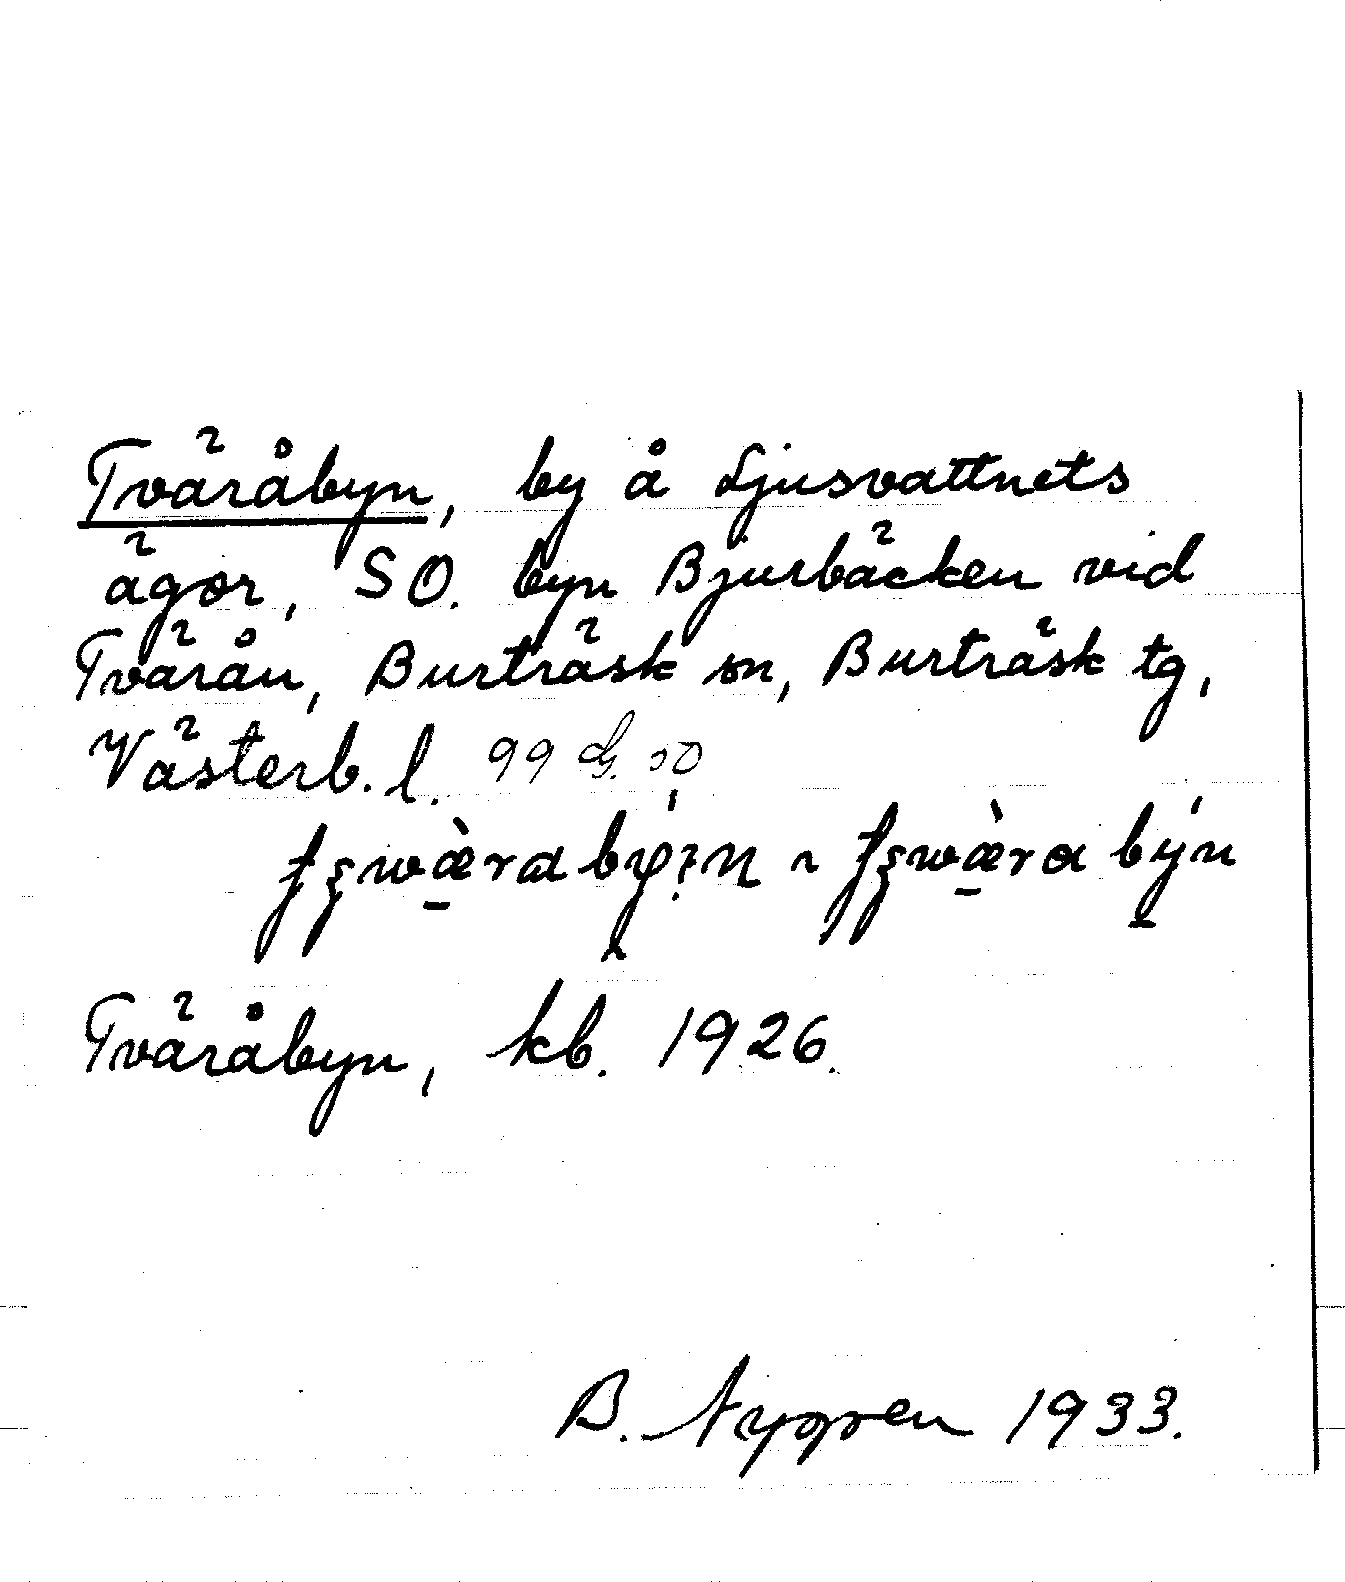 Tväråbyn, by å Ljusvattnets
ägor, SO. byn Bjurbäcken vid
Tvärån, Burträsk sn, Burträsk tg,
Västerb. l. 99
Tväråbyn, kb. 1926.
B. Nygren 1933.